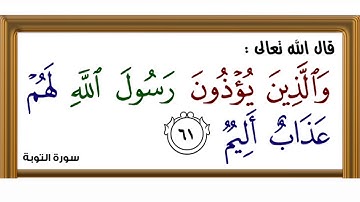 قال الله تعالى :
وَٱلَّذِينَ يُؤۡذُونَ رَسُولَ ٱللَّهِ لَهُمۡ
عَذَابٌ أَلِيمٞ ٦١
سورة التوبة